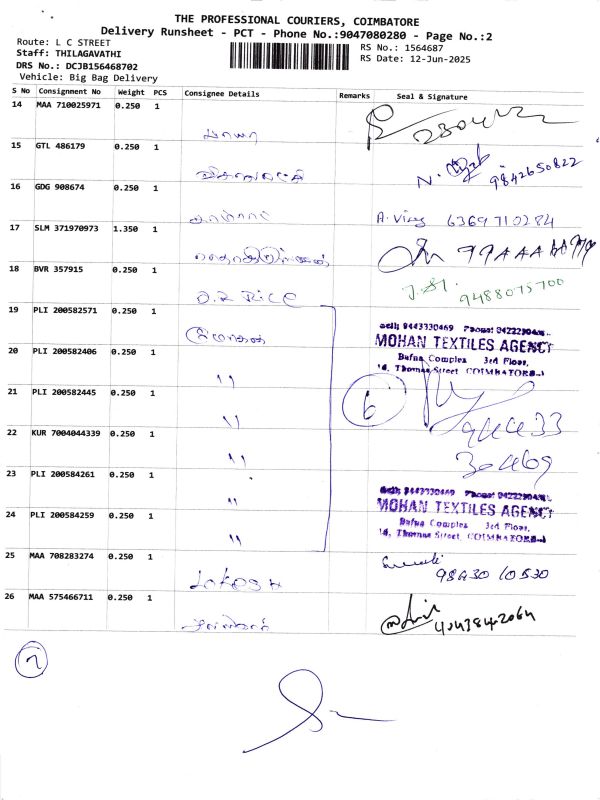 THE PROFESSIONAL COURIERS, COIMBATORE
Delivery Runsheet - PCT - Phone No.:9047080280 - Page No.:2
Route: L C STREET
Staff: THILAGAVATHI
DRS No.: DCJB156468702
Vehicle: Big Bag Delivery
RS No.: 1564687
RS Date: 12-Jun-2025
S No Consignment No Weight PCS Consignee Details Remarks Seal & Signature
14 MAA 710025971 0.250 1
15 GTL 486179 0.250 1
N. 9842650822
16 GDG 908674 0.250 1
A. Vijay 6369710284
17 SLM 371970973 1.350 1
18 BVR 357915 0.250 1
J. St. 9488075700
19 PLI 200582571 0.250 1
MOHAN TEXTILES AGENCY
Bafna Complex 3rd Floor,
14, Thomas Street COIMBATORE-1
20 PLI 200582406 0.250 1 "
6
21 PLI 200582445 0.250 1 "
94433
30469
22 KUR 7004044339 0.250 1 "
23 PLI 200584261 0.250 1 "
MOHAN TEXTILES AGENCY
Bafna Complex 3rd Floor,
14, Thomas Street COIMBATORE-1
24 PLI 200584259 0.250 1 "
25 MAA 708283274 0.250 1
Lokesh 98430 10530
26 MAA 575466711 0.250 1
7